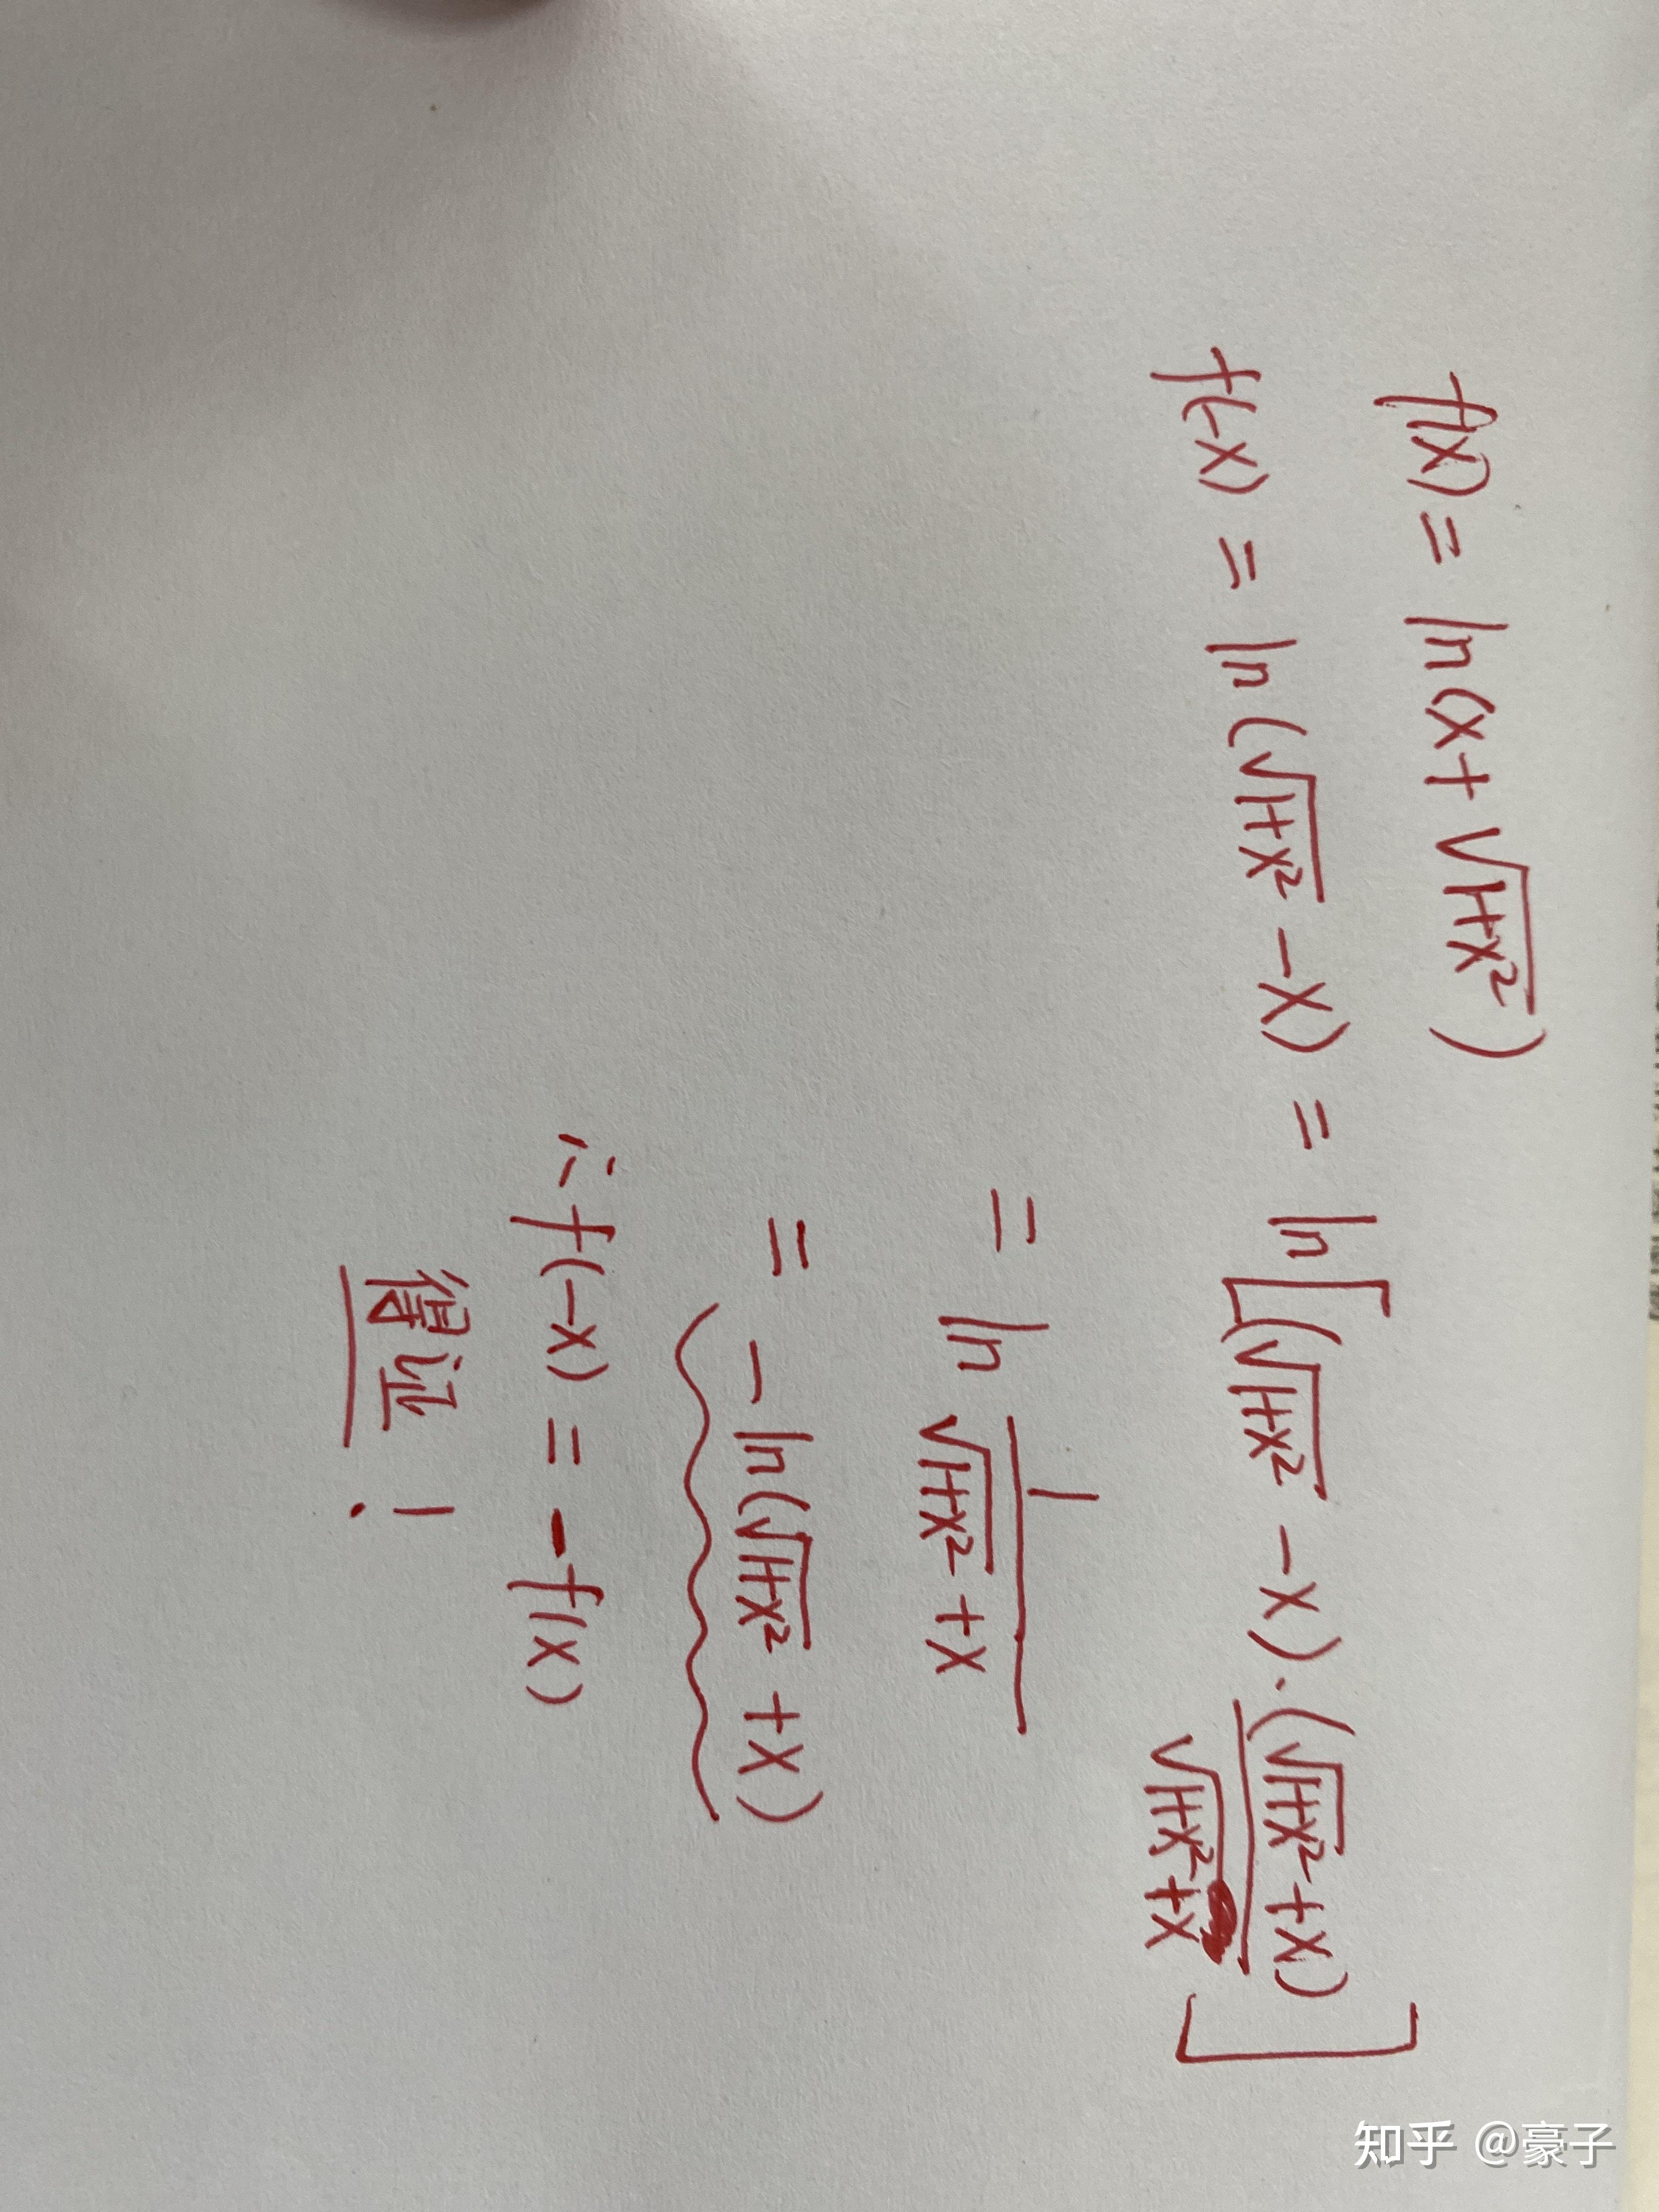 f(x) = ln(x+√(1+x²))
f(-x) = ln(√(1+x²) -x) = ln[(√(1+x²) -x)·(√(1+x²)+x)/(√(1+x²)+x)]
= ln 1/(√(1+x²)+x)
= -ln(√(1+x²)+x)
∴ f(-x) = -f(x)
得证!
知乎 @豪子